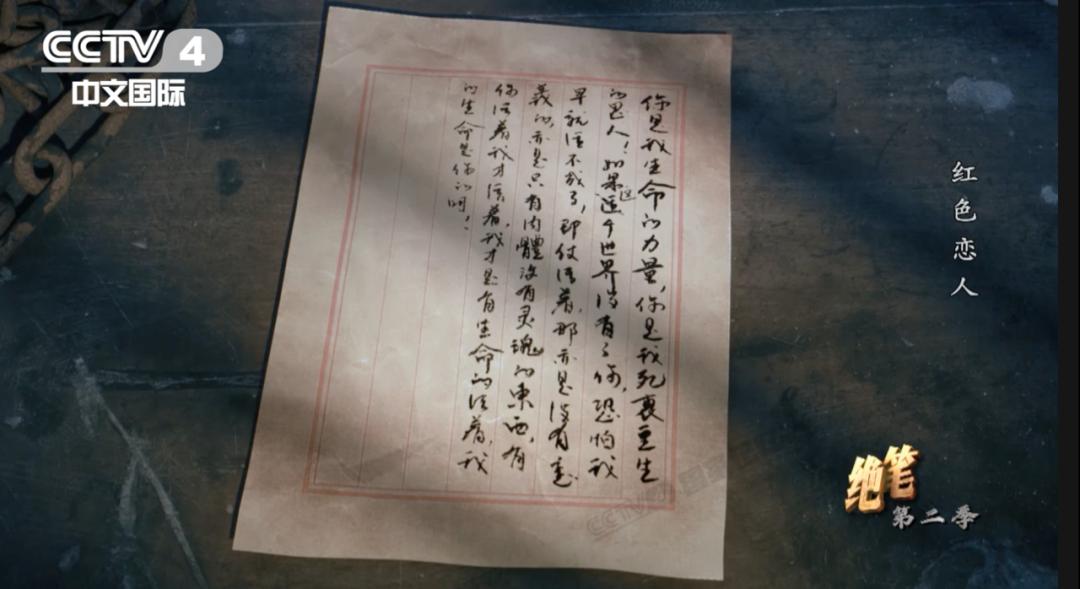 CCTV 4
中文国际
你是我生命的力量,你是我死裏重生
的恩人!如果這个世界没有了你,恐怕我
早就活不成了,即使活着,那亦是没有意
義的,亦是只有肉體没有灵魂的東西,有
你活着我才活着,我才是有生命的活着,我
的生命是你的呵!
红色恋人
绝笔
第二季